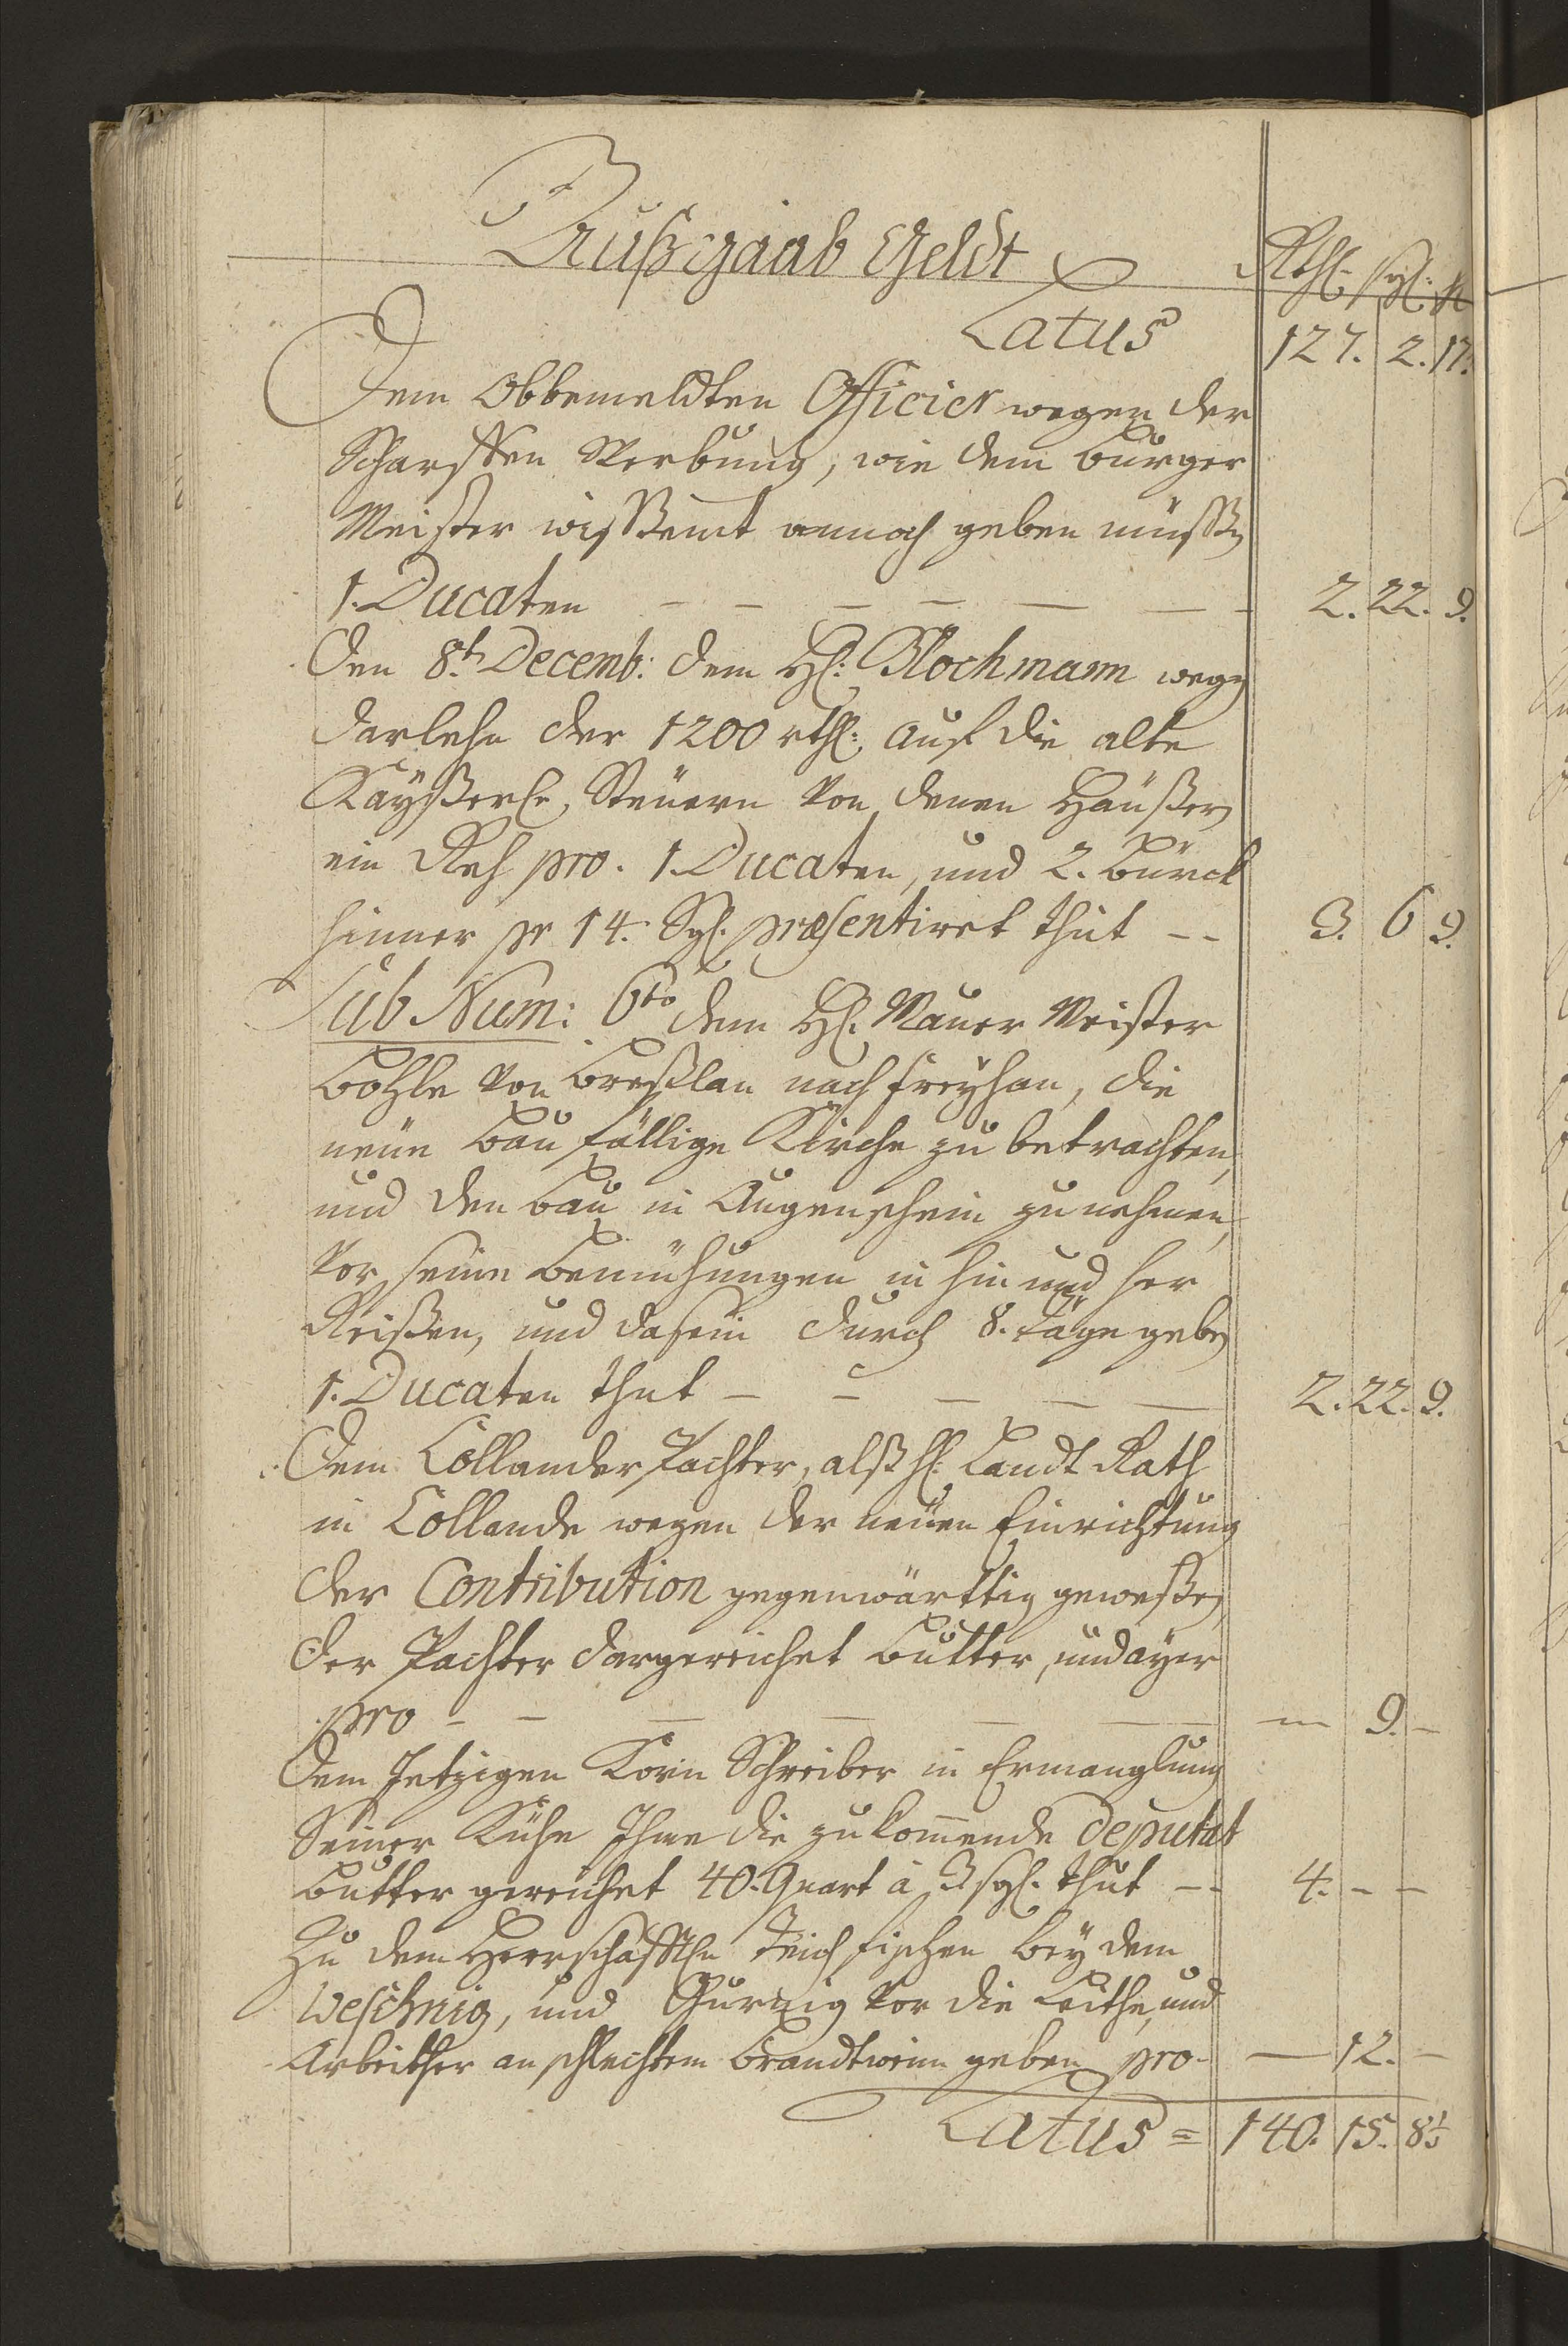 Außgaab Geldt
Rthl: sgl: h
Latus 127. 2. 17.
Dem Obbemeldten Officier wegen der
Scharffen Werbung, wie dem Burger
Meister wissent annoch geben müssen
1. Ducaten — — — — — — — 2. 22. 9.
Den 8t Decemb: dem H: Blochmann wegen
darlehn der 1200 rthl: auf die alte
Kaÿßerl: Steüern von denen Häußern
ein Reh pro. 1. Ducaten, und 2. Bürck
hinner pr 14. Sgl. præsentiret thut — — 3. 6 9.
Sub Num: 6to dem H: Mauer Meister
von Breßlau nach Freÿhan, die
neüe Baufällige Kirche zu betrachten,
und den Bau in Augenschein zu nehmen,
vor seine Bemühungen in hin und her
Reißen, und dasein durch 8. Täge geben
1. Ducaten thut — — — — — 2. 22. 9.
Dem Collander Pachter, alß H: Landt Rath
in Collande wegen der neüen Einrichtung
der Contribution gegenwärttig geweßen
der Pachter dargereichet Butter, und aÿer
pro — — — — — — — — 9. —
Dem Jetzigen Korn Schreiber in Ermanglung
Seiner Kühe Ihme die zukommende deputat
Butter gereichet 40. Quart à 3 sgl. thut — 4. — —
Zu dem Herrschafftln Teich fischen beÿ dem
Weschnig, und vor die Leithe, und
Arbeither an schlechtem Brandtwein geben pro — — 12. —
Latus = 140. 15. 8½